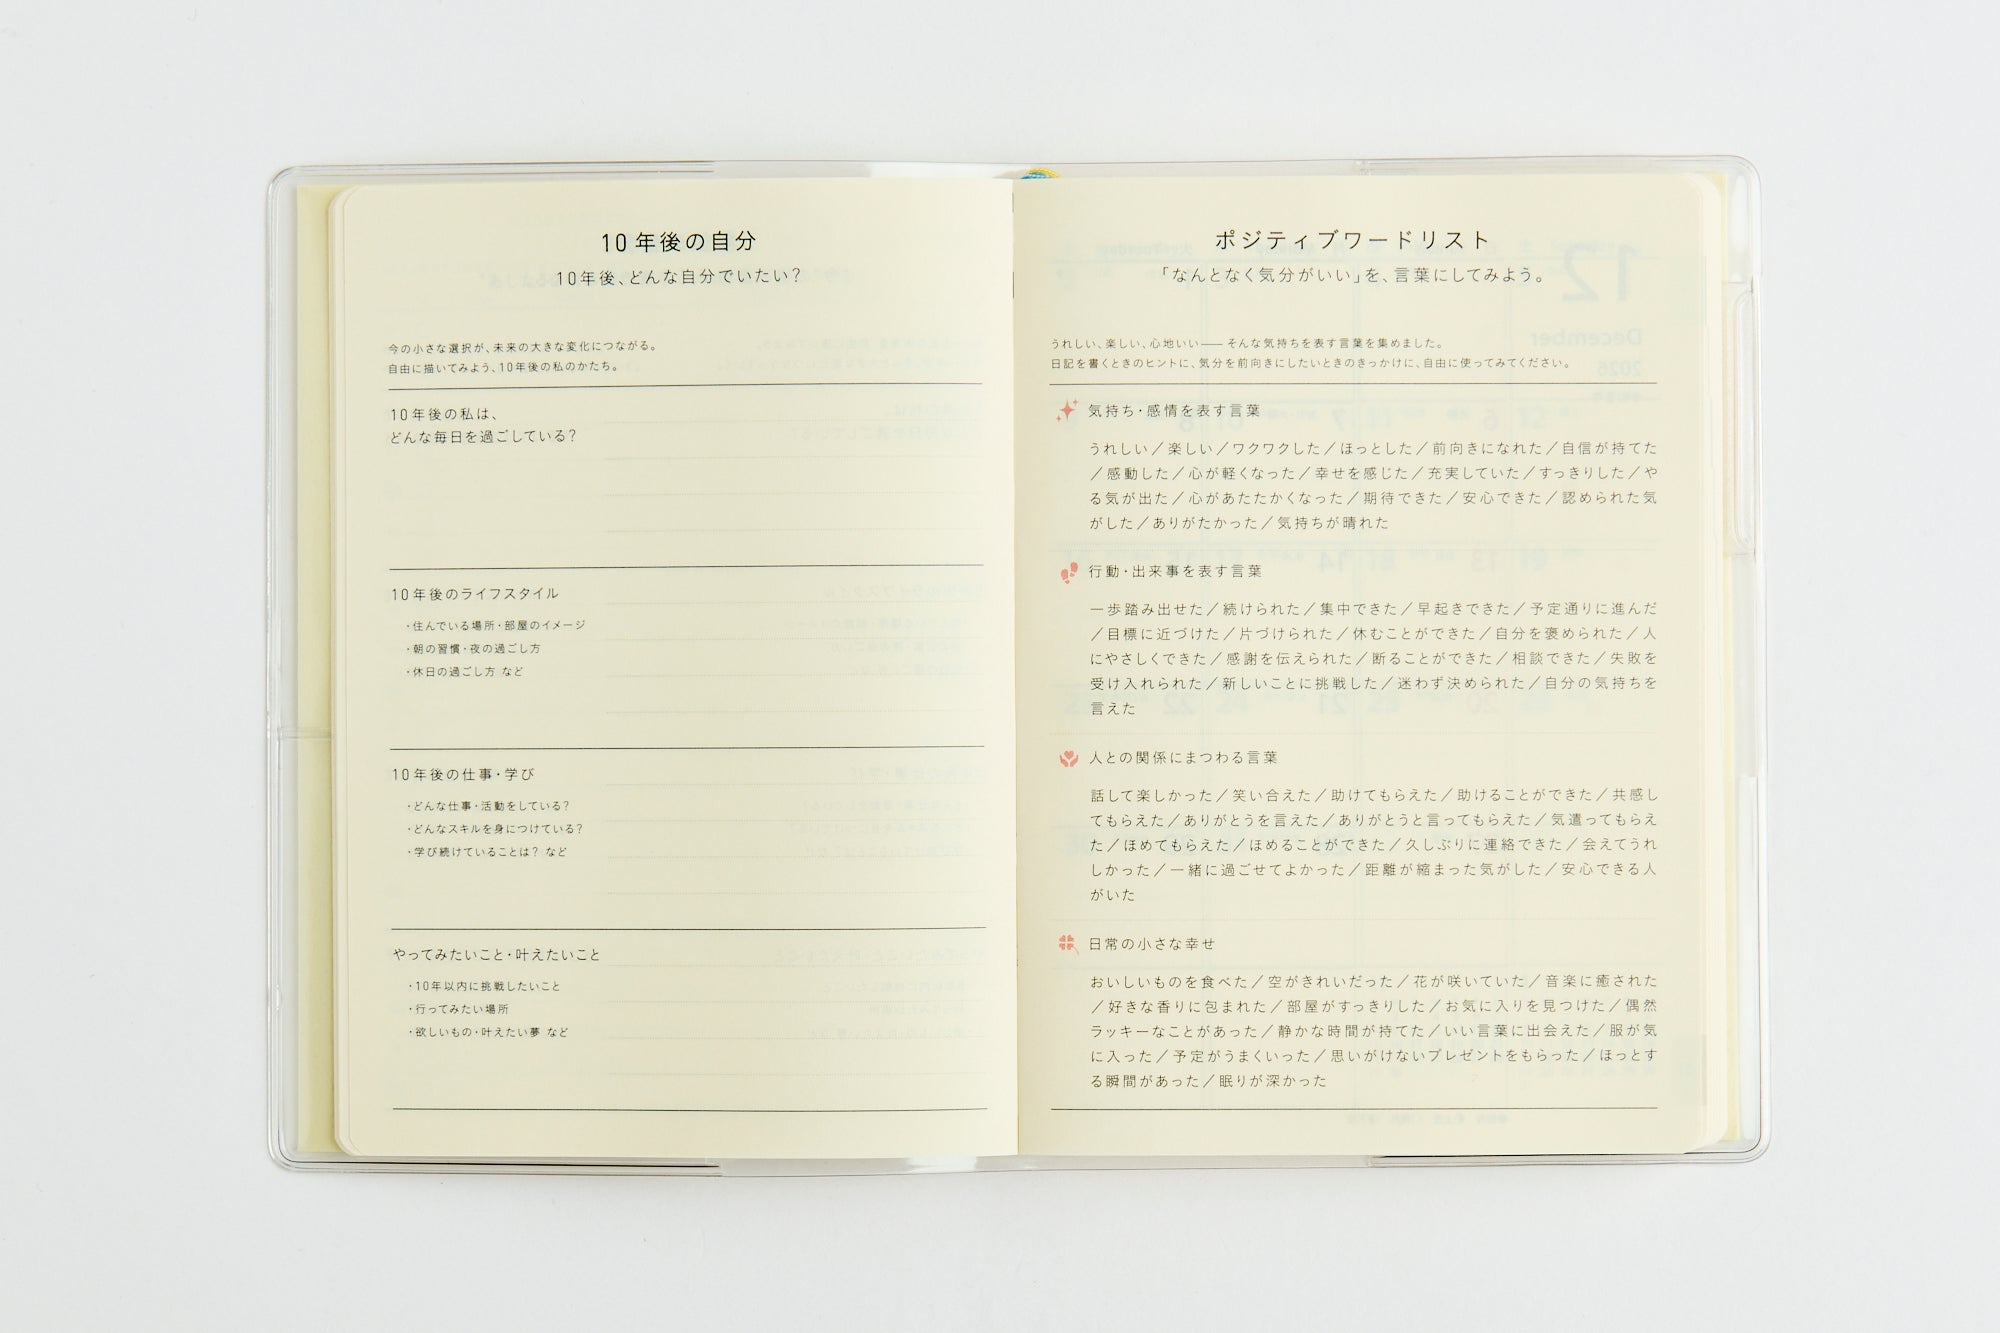 10年後の自分
10年後、どんな自分でいたい?
今の小さな選択が、未来の大きな変化につながる。
自由に描いてみよう、10年後の私のかたち。
10年後の私は、
どんな毎日を過ごしている?
10年後のライフスタイル
・住んでいる場所・部屋のイメージ
・朝の習慣・夜の過ごし方
・休日の過ごし方 など
10年後の仕事・学び
・どんな仕事・活動をしている?
・どんなスキルを身につけている?
・学び続けていることは? など
やってみたいこと・叶えたいこと
・10年以内に挑戦したいこと
・行ってみたい場所
・欲しいもの・叶えたい夢 など
ポジティブワードリスト
「なんとなく気分がいい」を、言葉にしてみよう。
うれしい、楽しい、心地いい―― そんな気持ちを表す言葉を集めました。
日記を書くときのヒントに、気分を前向きにしたいときのきっかけに、自由に使ってみてください。
気持ち・感情を表す言葉
うれしい/楽しい/ワクワクした/ほっとした/前向きになれた/自信が持てた
/感動した/心が軽くなった/幸せを感じた/充実していた/すっきりした/や
る気が出た/心があたたかくなった/期待できた/安心できた/認められた気
がした/ありがたかった/気持ちが晴れた
行動・出来事を表す言葉
一歩踏み出せた/続けられた/集中できた/早起きできた/予定通りに進んだ
/目標に近づけた/片づけられた/休むことができた/自分を褒められた/人
にやさしくできた/感謝を伝えられた/断ることができた/相談できた/失敗を
受け入れられた/新しいことに挑戦した/迷わず決められた/自分の気持ちを
言えた
人との関係にまつわる言葉
話して楽しかった/笑い合えた/助けてもらえた/助けることができた/共感し
てもらえた/ありがとうを言えた/ありがとうと言ってもらえた/気遣ってもらえ
た/ほめてもらえた/ほめることができた/久しぶりに連絡できた/会えてうれ
しかった/一緒に過ごせてよかった/距離が縮まった気がした/安心できる人
がいた
日常の小さな幸せ
おいしいものを食べた/空がきれいだった/花が咲いていた/音楽に癒された
/好きな香りに包まれた/部屋がすっきりした/お気に入りを見つけた/偶然
ラッキーなことがあった/静かな時間が持てた/いい言葉に出会えた/服が気
に入った/予定がうまくいった/思いがけないプレゼントをもらった/ほっとす
る瞬間があった/眠りが深かった